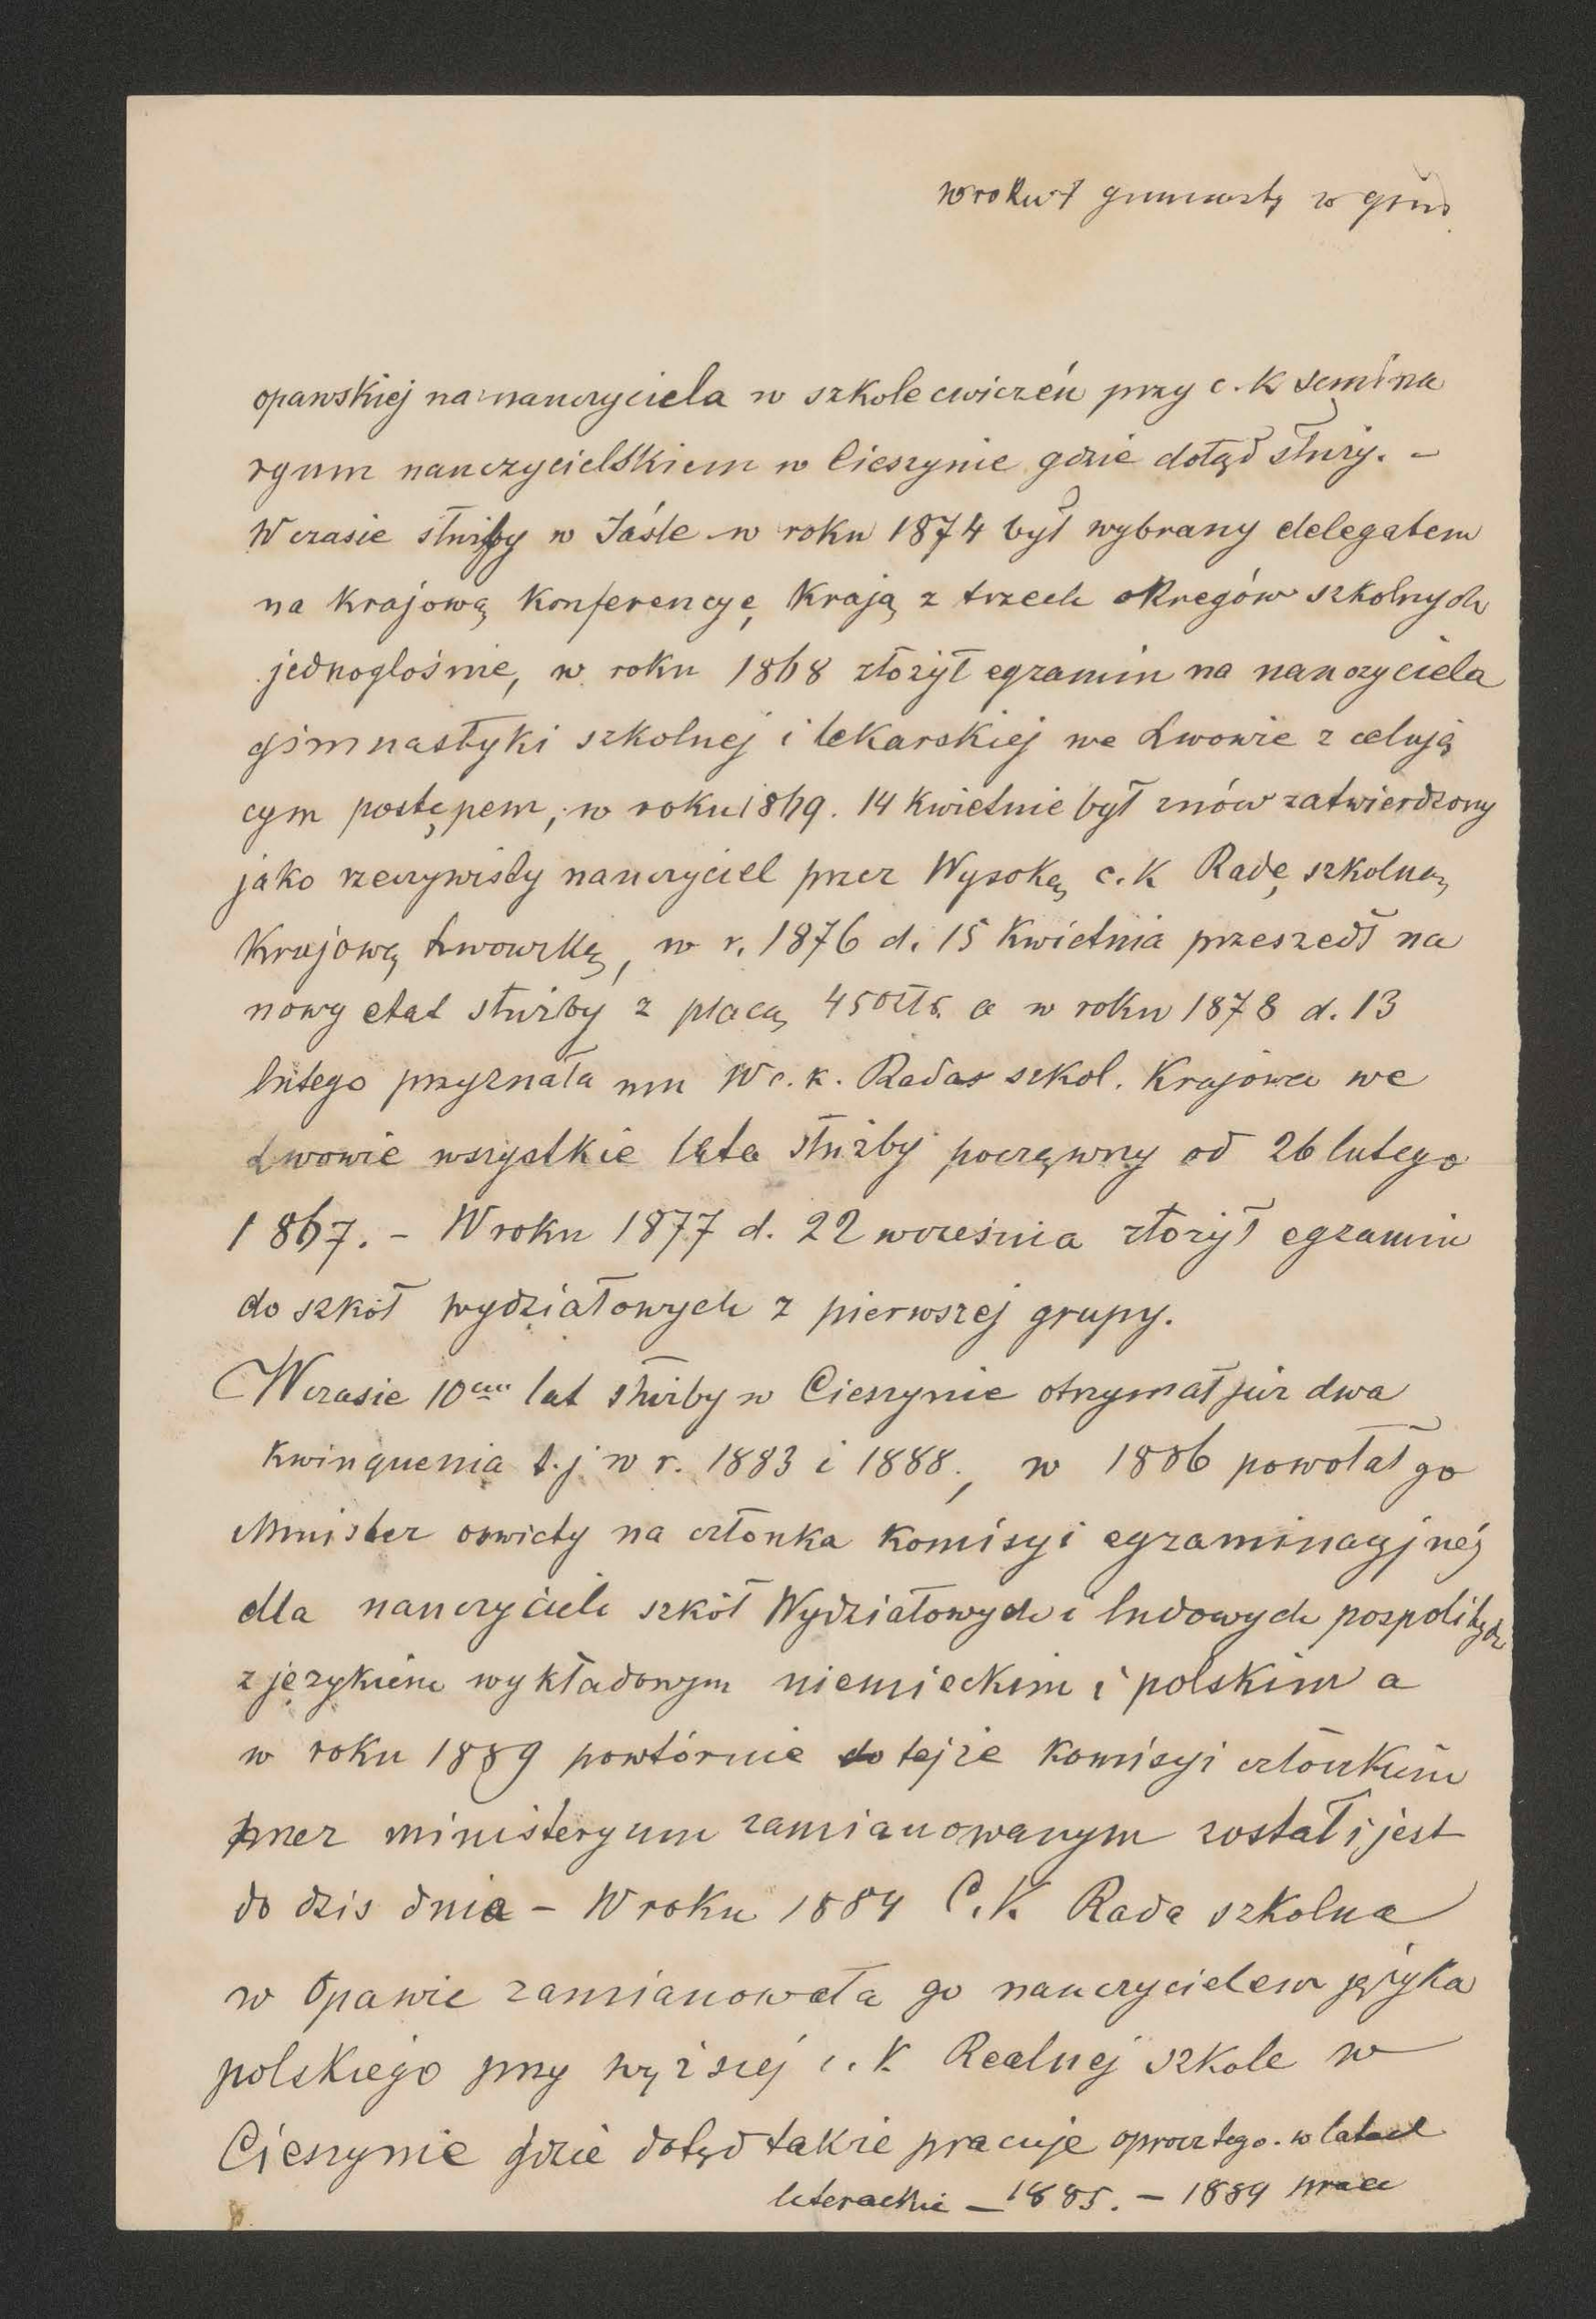 w roku
opawskiej na nauczyciela w szkole cwiczeń przy c. k semina
ryum nauczycielskiem w Cieszynie gdzie dotąd służy. –
W czasie służby w Jáśle w roku 1874 był wybrany delegatem
na krajową konferencyę, krają z trzech okregów szkolnych
jednogłośnie, w roku 1868 złożył egzamin na nauczyciela
gimnastyki szkolnej i lekarskiej we Lwowie z celują
cym postępem, w roku 1869. 14 kwietnie był znów zatwierdzony
jako rzeczywisty nauczyciel przez Wysoką c. k Radę szkolną
Krajową Lwowską, w r. 1876 d. 15 kwietnia przeszedł na
nowy etat służby z płacą 450 złr. a w roku 1878 d. 13
lutego przyznała mu W c. k. Rada szkol. Krajowa we
Lwowie wszystkie lata służby począwszy od 26 lutego
1867. – W roku 1877 d. 22 września złożył egzamin
do szkół wydziałowych z pierwszej grupy.
W czasie 10ciu lat służby w Cieszynie otrzymał już dwa
kwinquenia t. j w r. 1883 i 1888., w 1886 powołał go
Minister oswiaty na członka komisyi egzaminacyjnéj
dla nauczycieli szkół Wydziałowych i ludowych pospolitych
z językiem wykładowym niemieckim i polskim a
w roku 1889 powtórnie do tejże komisyi członkiem
przez ministeryum zamianowanym został i jest
do dzis dnia – W roku 1884 C. K. Rada szkolna
w Opawie zamianowała go nauczycielem języka
polskiego przy wyższej c. k. Realnej szkole w
Cieszynie gdzie dotąd także pracuje oprocz tego. w latach
literackie – 1885. – 1889 prace